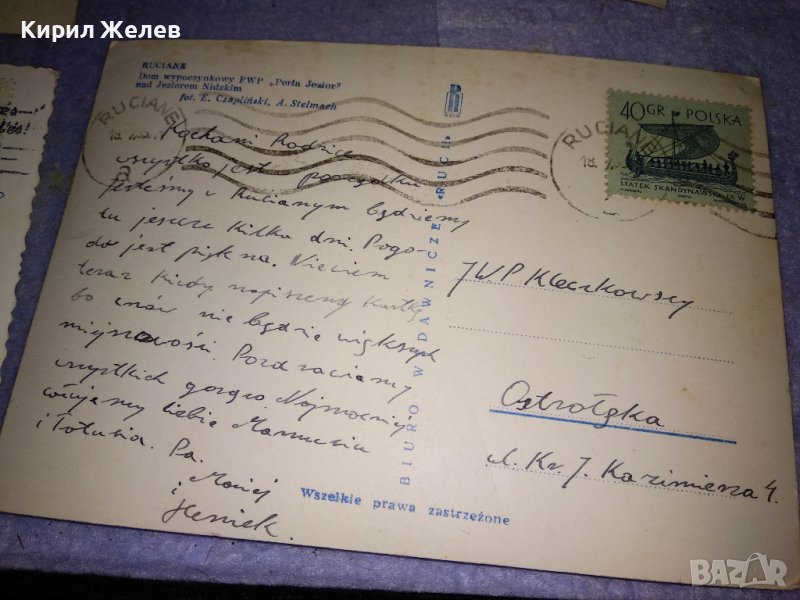 Кирил Желев
RUCIANE
Dom wypoczynkowy FWP „Perła Jezior”
nad Jeziorem Nidzkim
fot. E. Czapliński, A. Stelmach
RUCIANE
18
a
Kochani Rodzice
wszystko jest porządku
jesteśmy w Rucianym będziemy
tu jeszcze kilka dni. Pogo-
da jest piękna. Niewiem
teraz kiedy napiszemy kartkę
bo znów nie będzie większych
miejscowości. Pozdrawiamy
wszystkich gorąco Najmocniej
całujemy Ciebie Mamusiu
i Tatusia. Pa.
Maciej
i
Heniek.
BIURO WYDAWNICZE RUCH
Wszelkie prawa zastrzeżone
RUCIANE
18
40GR POLSKA
STATEK SKANDYNAWSKI IX W
JWP Kleczkowscy
Ostrołęka
ul. Kr. J. Kazimierza 4.
BAZAR